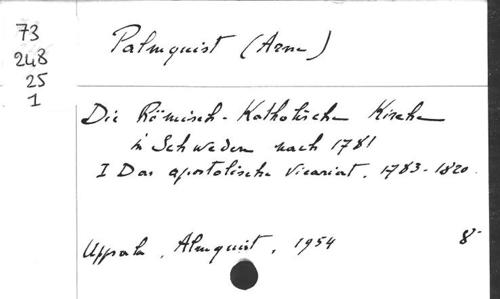 73
248
25
1
Palmquist (Arne)
Die Römisch-Katholische Kirche
in Schweden nach 1781
I Das apostolische Vicariat. 1783-1820.
Uppsala, Almquist, 1954 8°